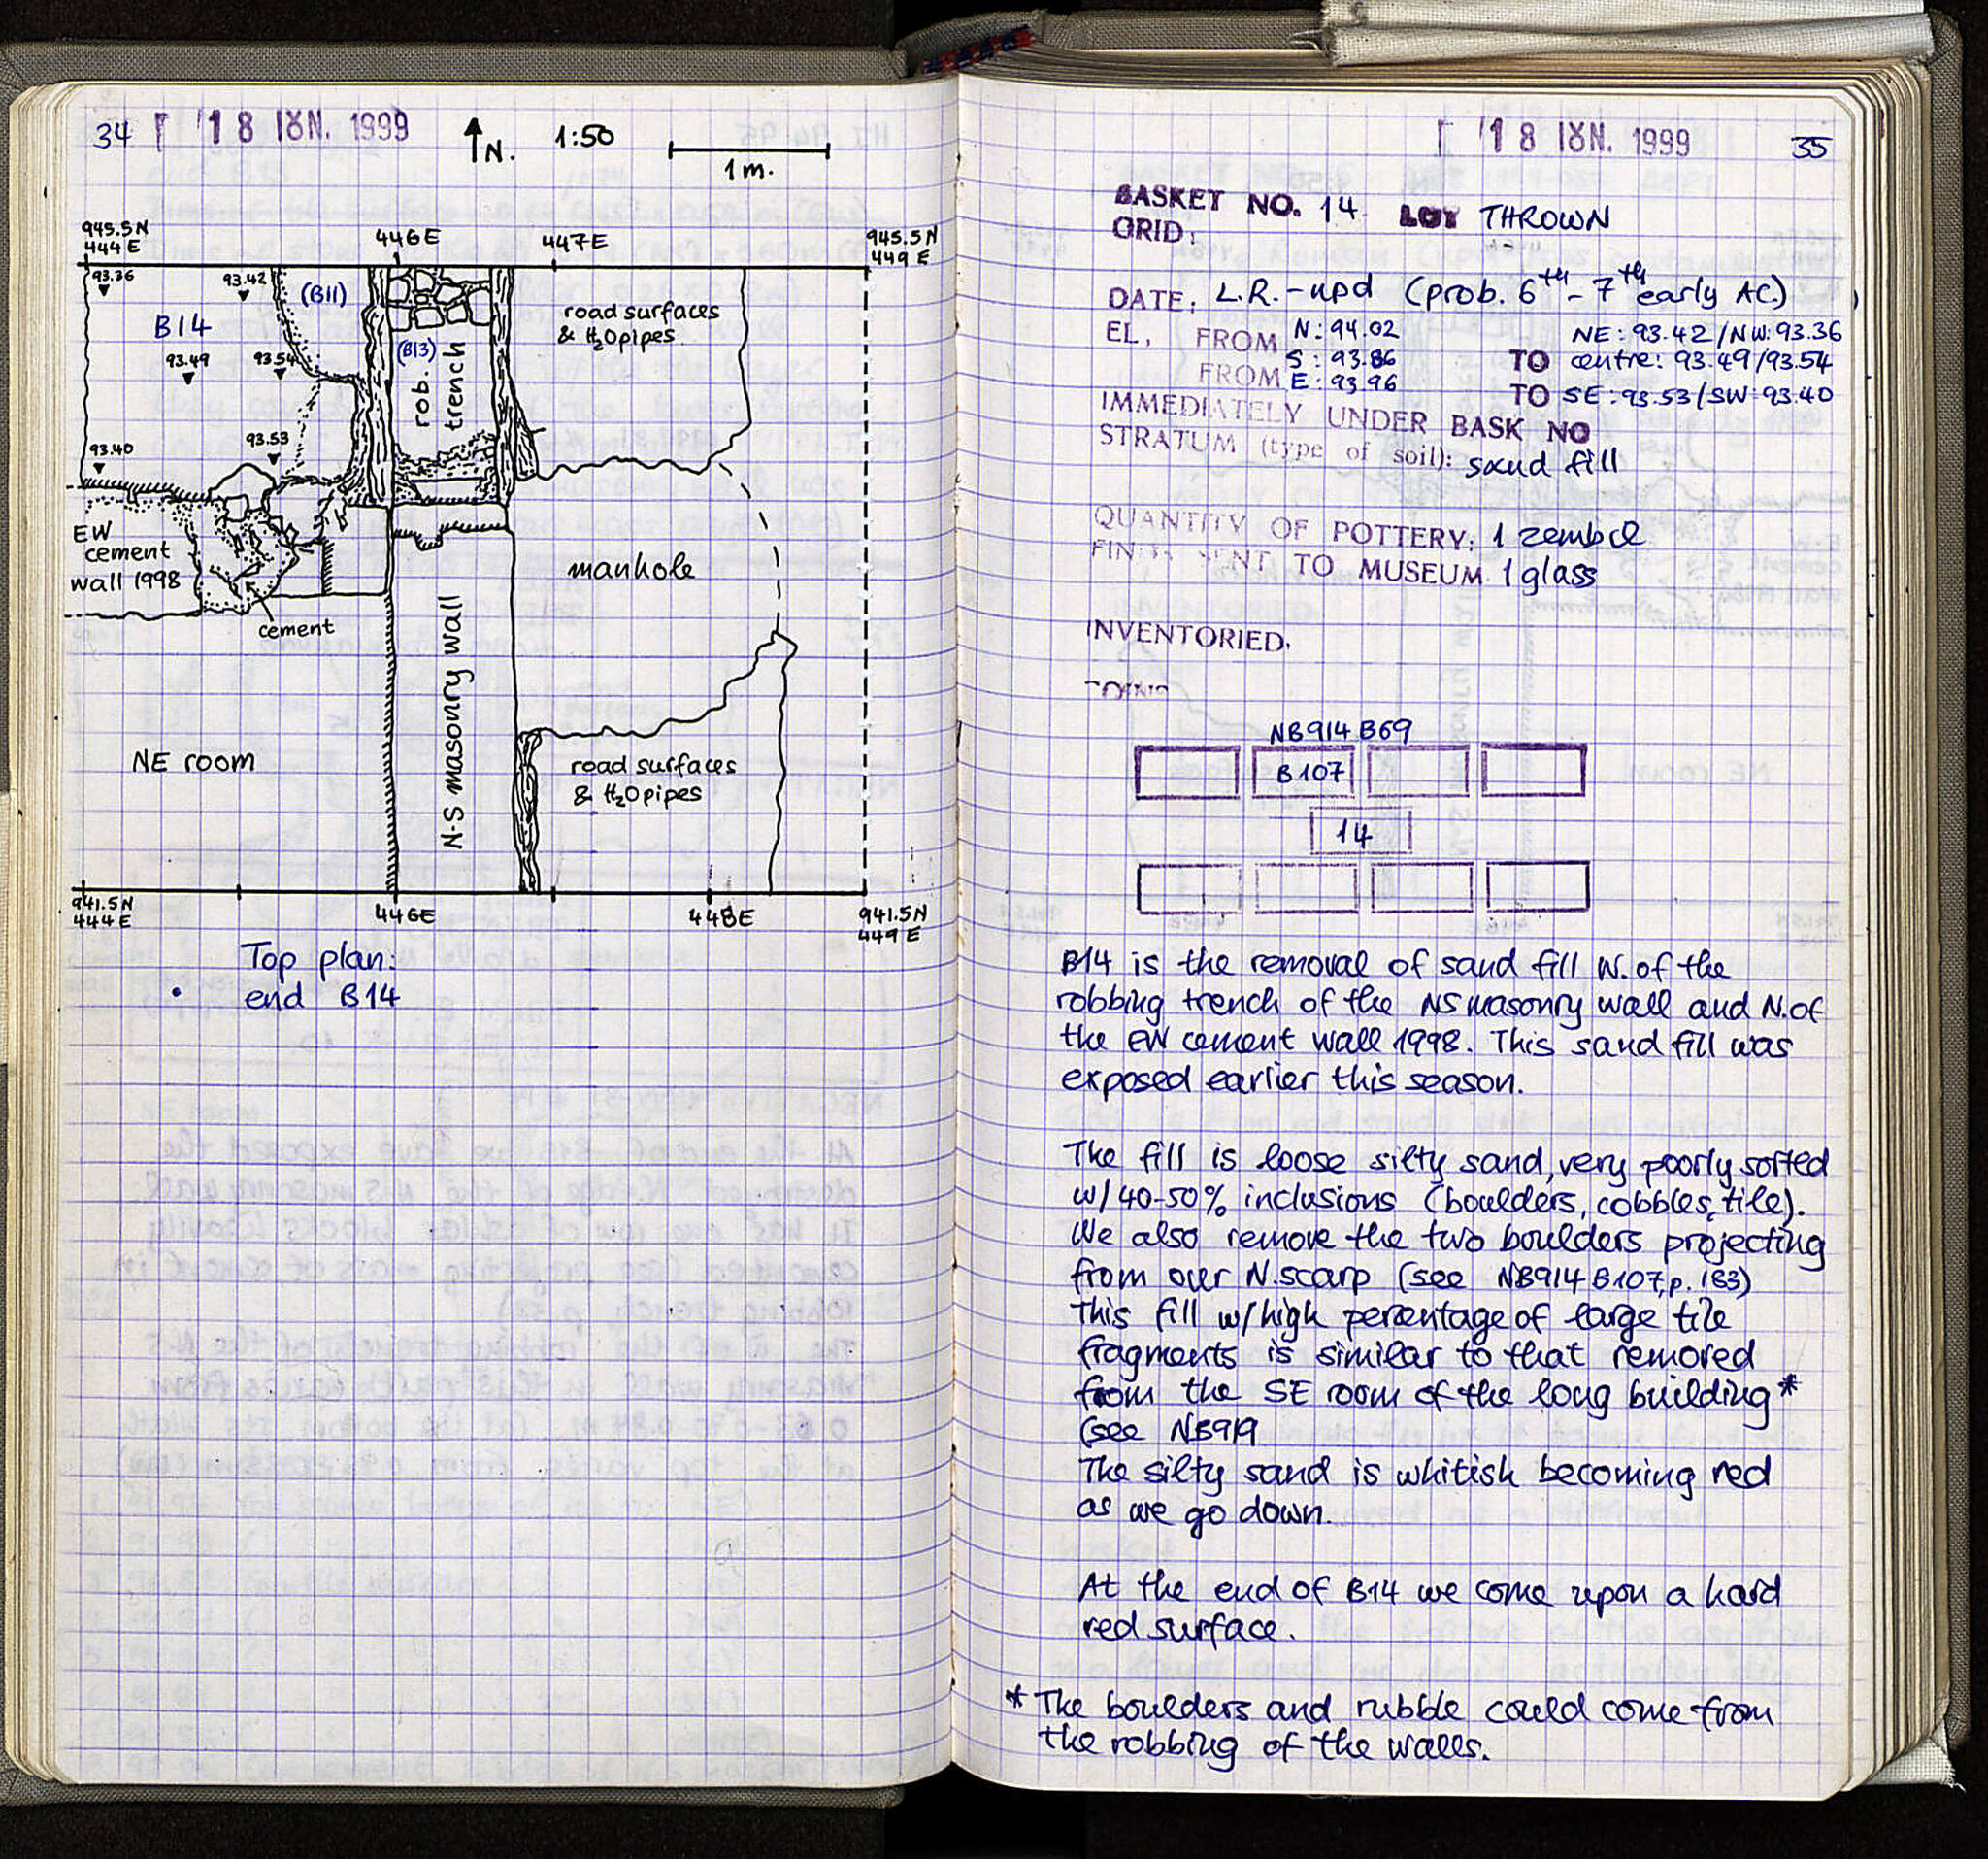 34 18 ΙΟΥΝ. 1999 N. 1:50
1 m.
945.5N
444E
446E
447E
945.5N
449E
93.36
93.42
(B11)
B14
93.49
93.54
(B13)
rob. trench
road surfaces
& H₂O pipes
93.40
93.53
EW
cement
wall 1998
cement
manhole
N-S masonry wall
NE room
road surfaces
& H₂O pipes
941.5N
444E
446E
448E
941.5N
449E
Top plan:
end B14
18 ΙΟΥΝ. 1999 35
BASKET NO. 14 LOT THROWN
GRID:
DATE: L.R.-upd (prob. 6th-7th early AC.)
EL, FROM N: 94.02 NE: 93.42/NW: 93.36
S: 93.86 TO centre: 93.49/93.54
FROM E: 93.96 TO SE: 93.53/SW: 93.40
IMMEDIATELY UNDER BASK NO
STRATUM (type of soil): sand fill
QUANTITY OF POTTERY: 1 zembil
FINDS SENT TO MUSEUM. 1 glass
INVENTORIED.
NB914 B69
B107
14
B14 is the removal of sand fill W. of the
robbing trench of the NS masonry wall and N. of
the EW cement wall 1998. This sand fill was
exposed earlier this season.
The fill is loose silty sand, very poorly sorted
w/ 40-50% inclusions (boulders, cobbles, tile).
We also remove the two boulders projecting
from our N. scarp (see NB914 B107, p. 183)
This fill w/ high percentage of large tile
fragments is similar to that removed
from the SE room of the long building*
(see NB919
The silty sand is whitish becoming red
as we go down.
At the end of B14 we come upon a hard
red surface.
* The boulders and rubble could come from
the robbing of the walls.